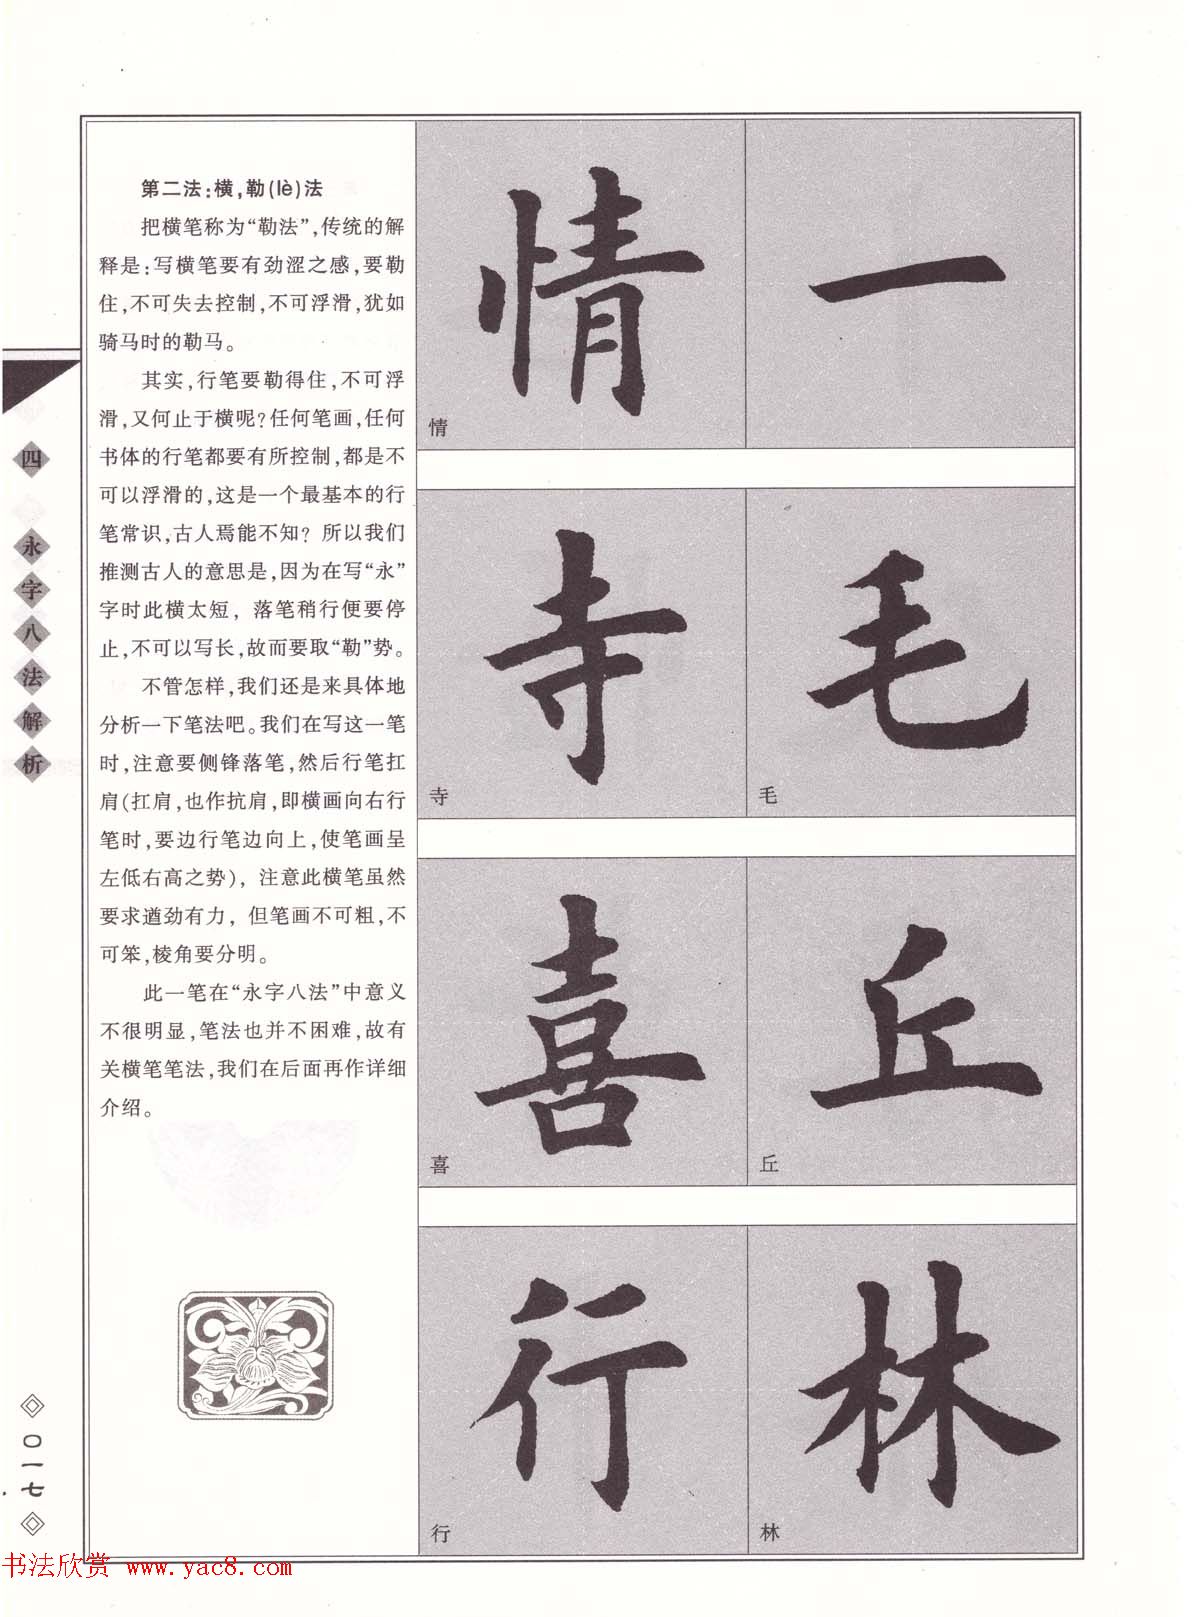 第二法：横，勒（lè）法
把横笔称为“勒法”，传统的解
释是：写横笔要有劲涩之感，要勒
住，不可失去控制，不可浮滑，犹如
骑马时的勒马。
其实，行笔要勒得住，不可浮
滑，又何止于横呢？任何笔画，任何
书体的行笔都要有所控制，都是不
可以浮滑的，这是一个最基本的行
笔常识，古人焉能不知？所以我们
推测古人的意思是，因为在写“永”
字时此横太短，落笔稍行便要停
止，不可以写长，故而要取“勒”势。
不管怎样，我们还是来具体地
分析一下笔法吧。我们在写这一笔
时，注意要侧锋落笔，然后行笔扛
肩（扛肩，也作抗肩，即横画向右行
笔时，要边行笔边向上，使笔画呈
左低右高之势），注意此横笔虽然
要求遒劲有力，但笔画不可粗，不
可笨，棱角要分明。
此一笔在“永字八法”中意义
不很明显，笔法也并不困难，故有
关横笔笔法，我们在后面再作详细
介绍。
情
一
情
寺
毛
寺
毛
喜
丘
喜
丘
行
林
行
林
四 永字八法解析
〇一七
书法欣赏 www.yac8.com